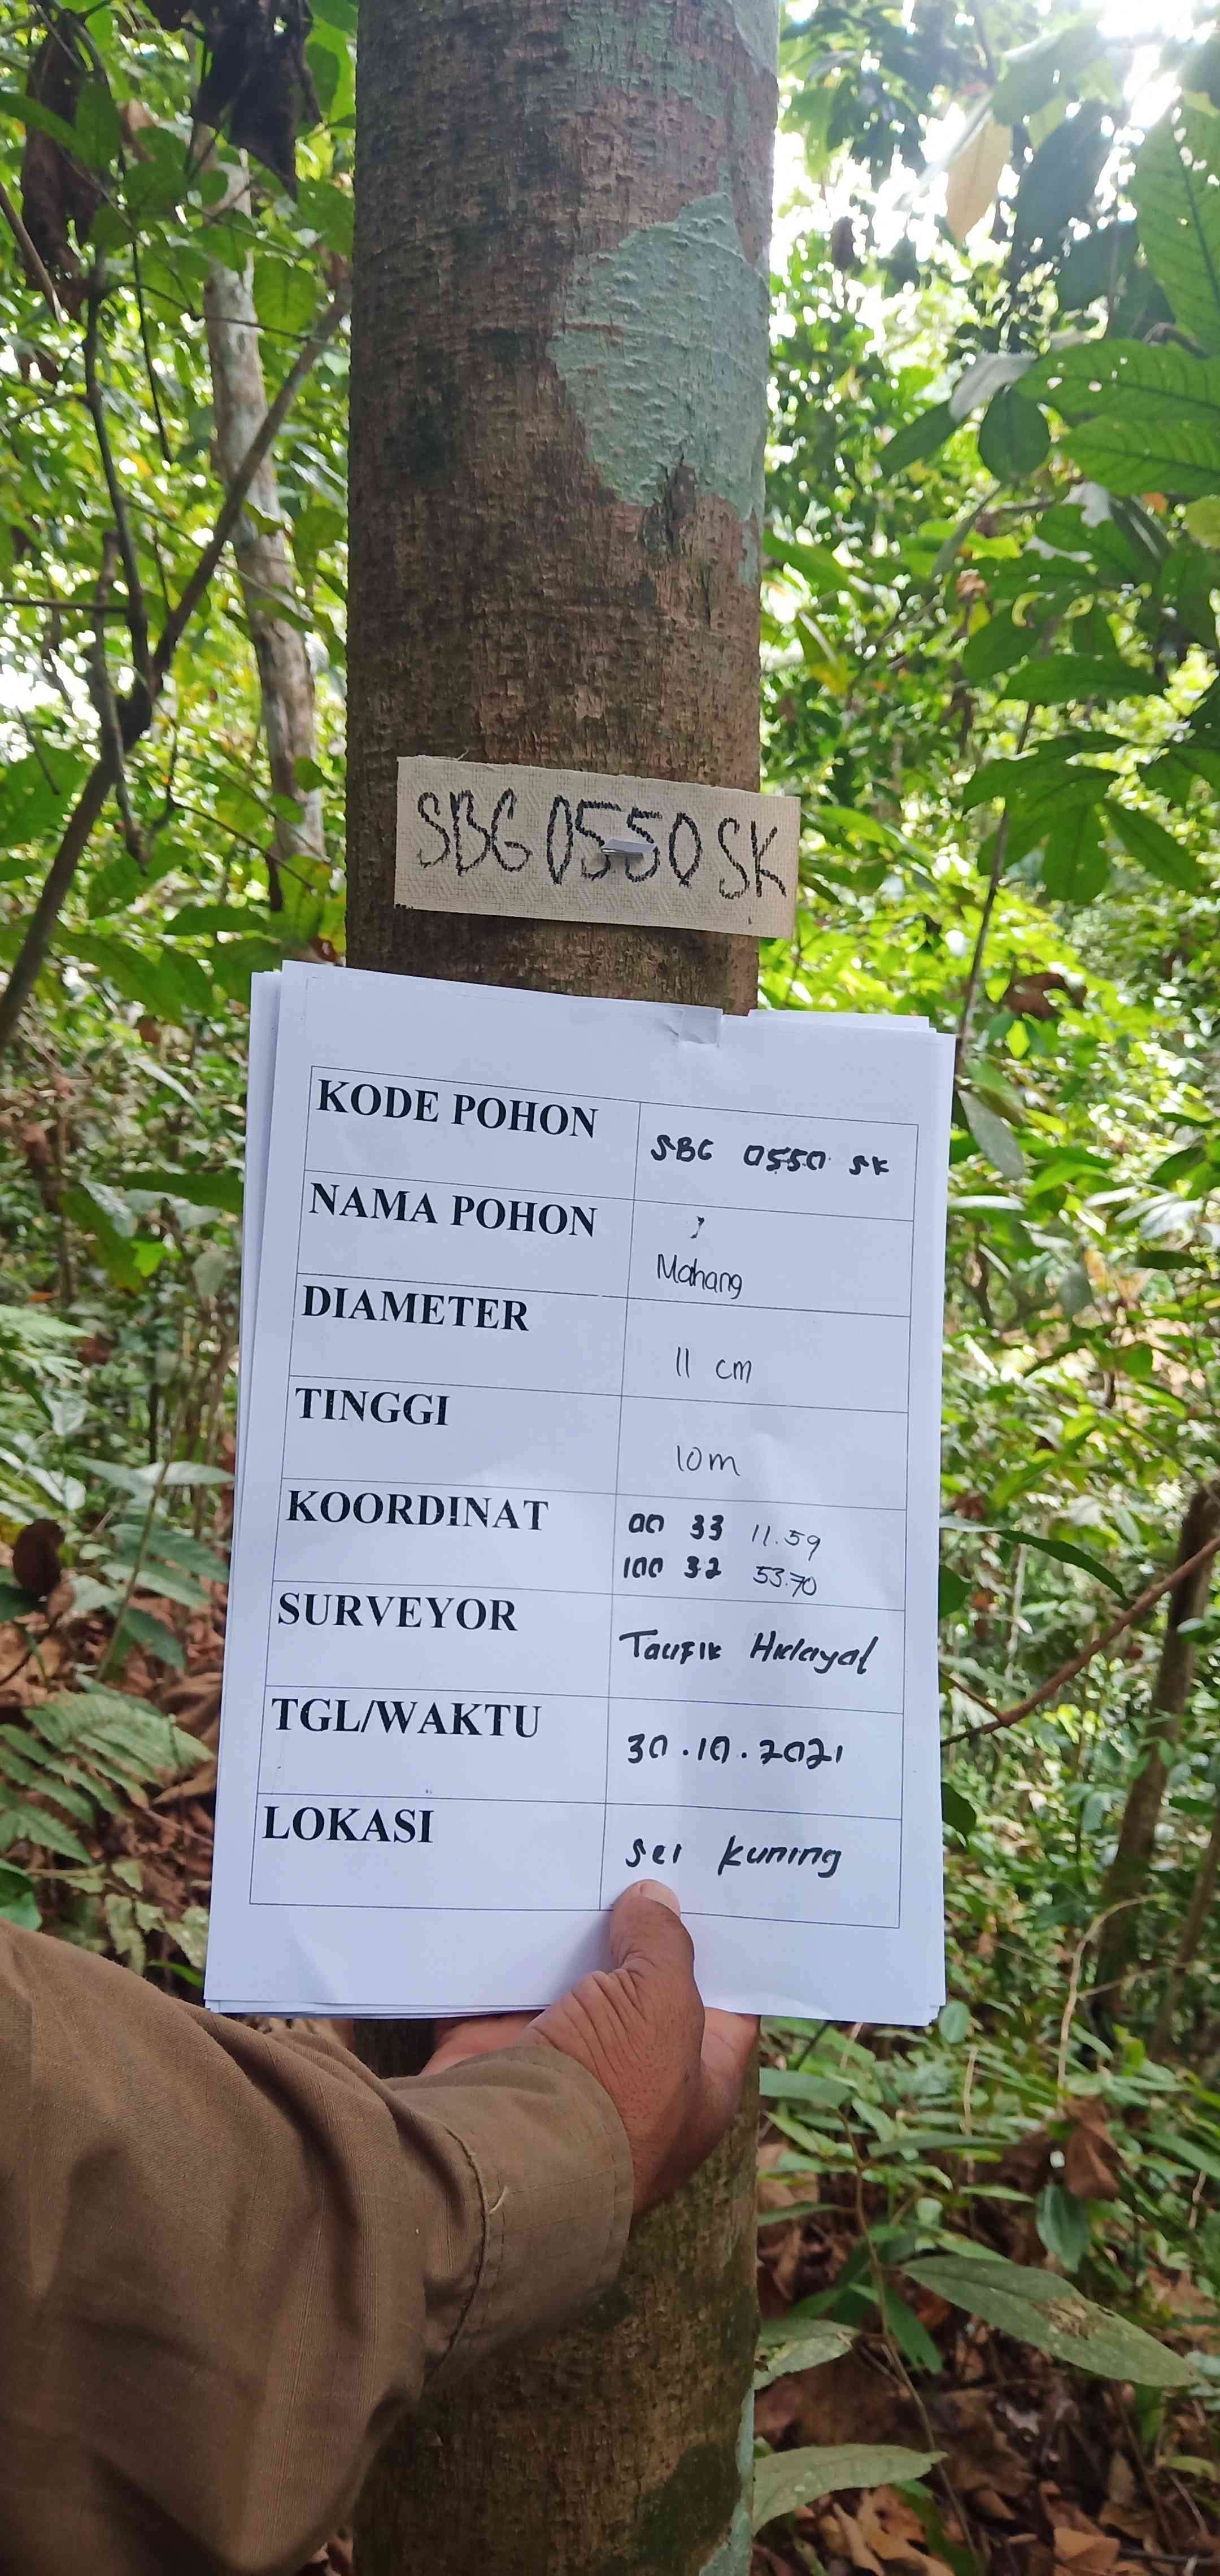 SBG 0550 SK
KODE POHON SBG 0550 SK
NAMA POHON Mahang
DIAMETER 11 cm
TINGGI 10m
KOORDINAT 00 33 11.59
100 32 53.70
SURVEYOR Taufik Hidayat
TGL/WAKTU 30.10.2021
LOKASI Sei Kuning